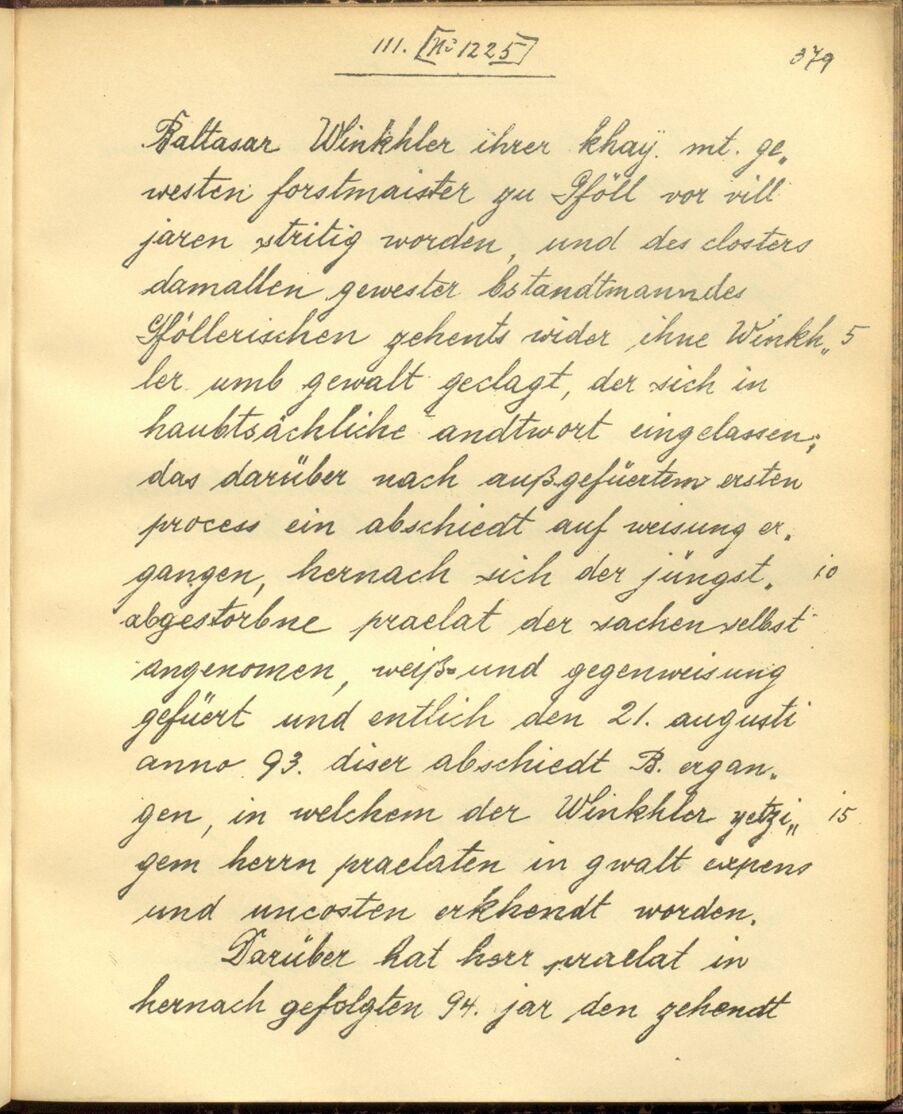 III. [No 1225]
379
Baltasar Winkhler ihrer khay. mt. ge„
westen forstmaister zu Gföll vor vill
jaren stritig worden, und des closters
damallen gewester bstandtmann des
Gföllerischen zehents wider ihne Winkh„ 5
ler umb gewalt geclagt, der sich in
haubtsächliche andtwort eingelassen;
das darüber nach außgefüertem ersten
process ein abschiedt auf weisung er„
gangen, hernach sich der jüngst„ 10
abgestorbne praelat der sachen selbst
angenomen, weiß- und gegenweisung
gefüert und entlich den 21. augusti
anno 93. diser abschiedt B. ergan„
gen, in welchem der Winkhler yetzi„ 15
gem herrn praelaten in gwalt expens
und uncosten erkhendt worden.
Darüber hat herr praelat in
hernach gefolgten 94. jar den zehendt